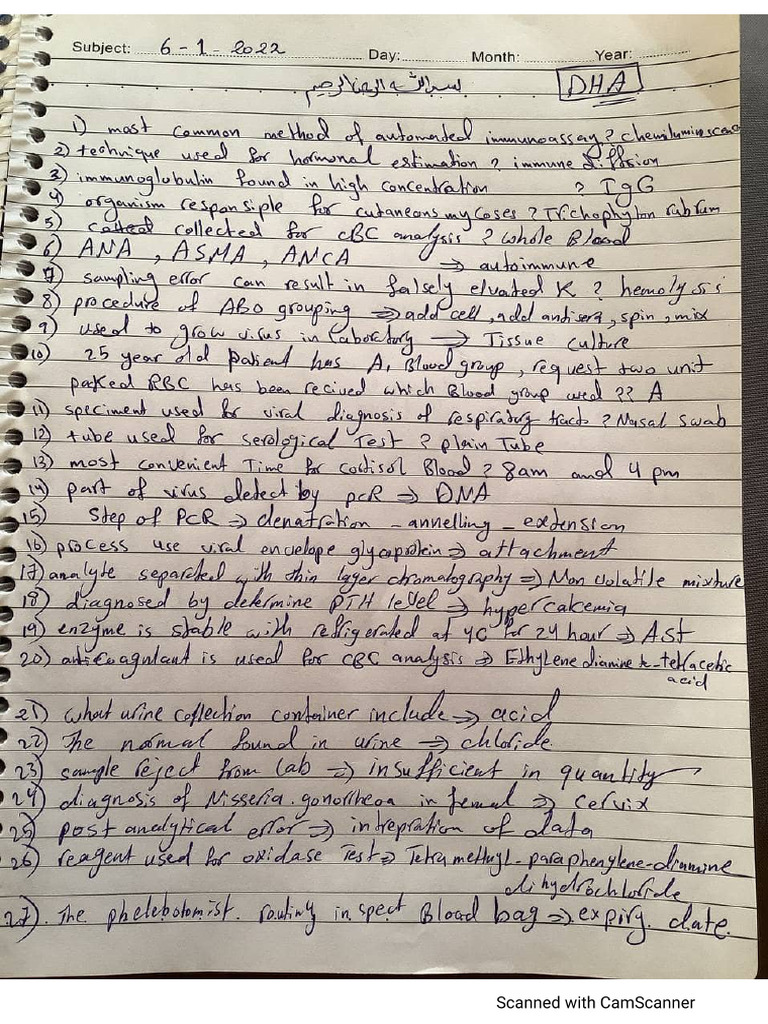 Subject: 6-1-2022 Day: Month: Year:
بسم الله الرحمن الرحيم DHA
1) most common method of automated immunoassay? chemiluminscence
2) technique used for hormonal estimation? immune diffusion
3) immunoglobulin found in high concentration ? IgG
4) organism responsiple for cutaneons mycoses? Trichophyton rubrum
5) collected for CBC analysis? whole Blood
6) ANA, ASMA, ANCA ⇒ autoimmune
7) sampling error can result in falsely elvated K? hemolysis
8) procedure of ABO grouping ⇒ add cell, add antisera, spin, mix
9) used to grow virus in laboratory → Tissue culture
10) 25 year old patient has A, Blood group, request two unit
paked RBC has been recived which Blood group used?? A
11) speciment used for viral diagnosis of respiratory tract? Nasal swab
12) tube used for serological Test? plain Tube
13) most convenient Time for cortisol Blood? 8am and 4 pm
14) part of virus detect by pcR ⇒ DNA
15) Step of PCR ⇒ denatration - annelling - extension
16) process use viral envelope glycoprotein ⇒ attachment
17) analyte separated with thin layer chromatography ⇒ Non volatile mixture
18) diagnosed by determine PTH level ⇒ hypercalcemia
19) enzyme is stable with refrigerated at 4C for 24 hour ⇒ AST
20) anticoagulant is used for CBC analysis ⇒ Ethylene diamine tetracetic
acid
21) what urine collection container include ⇒ acid
22) The normal found in urine ⇒ chloride
23) sample reject from lab ⇒ insufficient in quantity
24) diagnosis of Nisseria.gonorrheoa in femal ⇒ cervix
25) post analytical error ⇒ intrepration of data
26) reagent used for oxidase Test ⇒ Tetra methyl-paraphenylene-diamine
dihydrochloride
27). The phelebotomist. routing inspect Blood bag ⇒ expiry. date.
Scanned with CamScanner